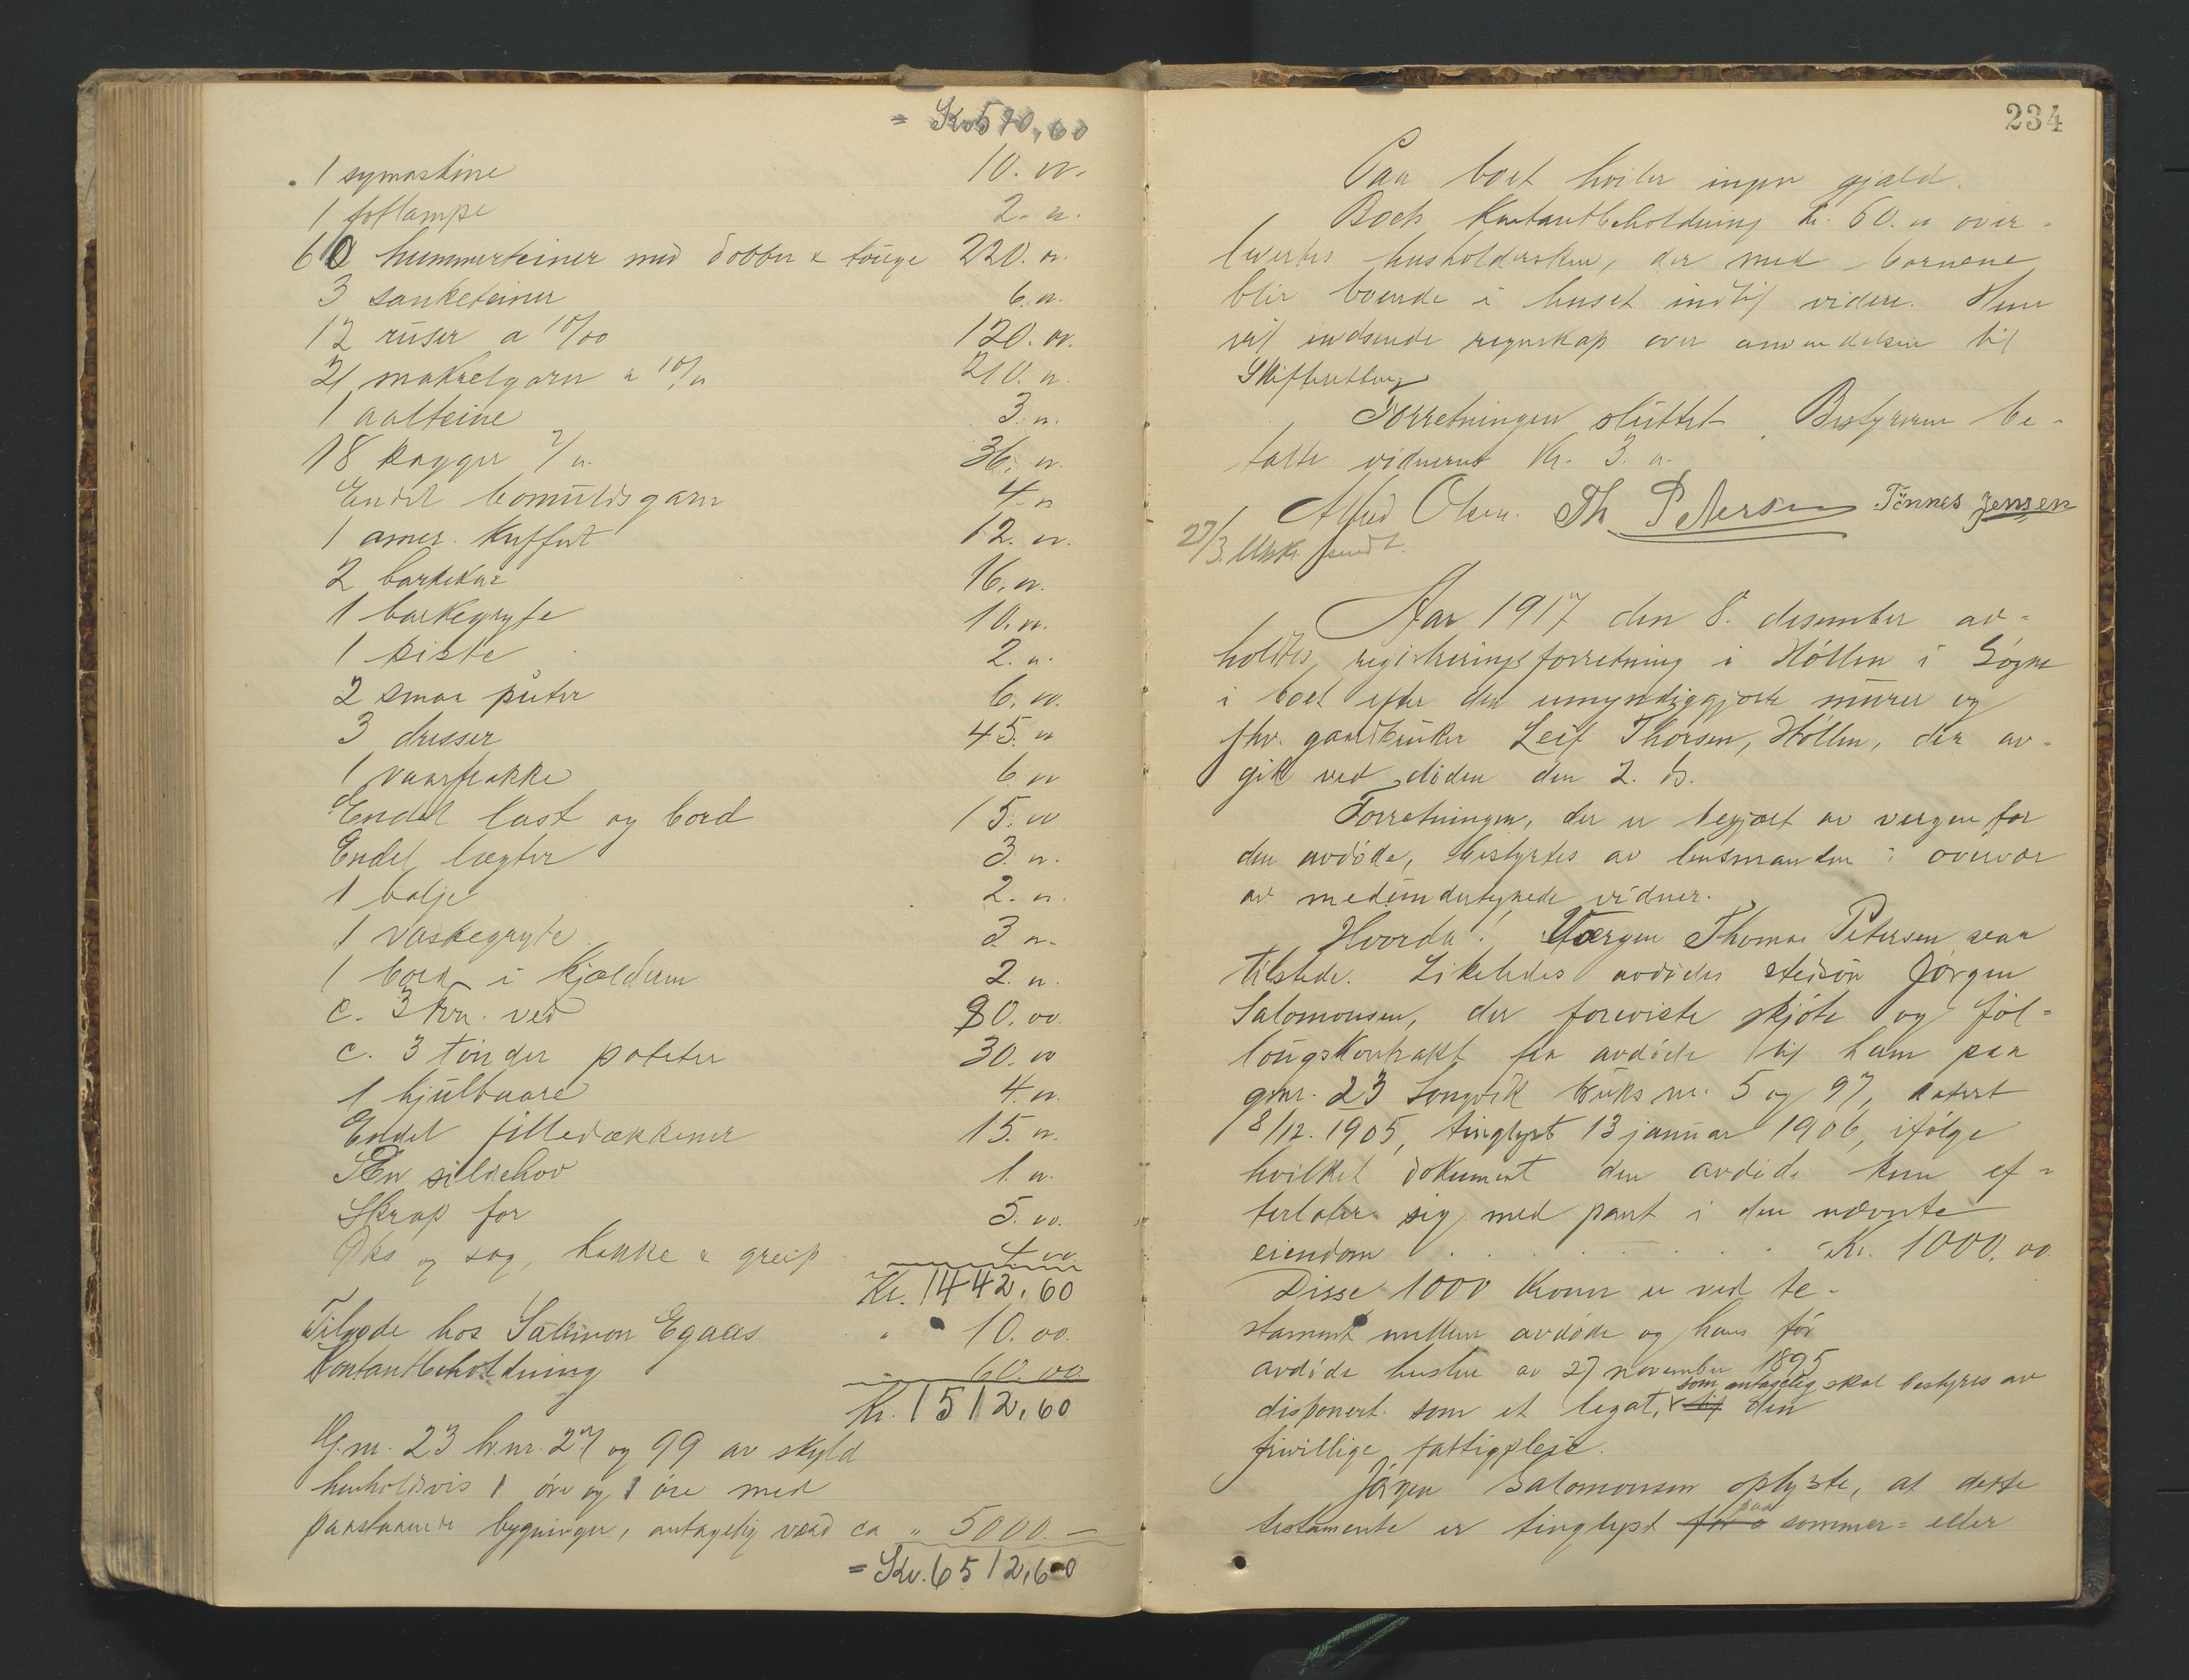 = Kr. 570,60
1 symaskine 10.00.
1 loflampe 2.00.
60 hummerteiner med dobber & touge 220.00.
3 sanketeiner 6.00.
12 ruser a 10/00 120.00.
21 makrelgarn a 10/00 210.00.
1 aalteine 3.00.
18 kagger 2/00. 36.00.
Endel bomuldsgarn 4.00
1 amer. kuffert 12.00.
2 barkekar 16.00.
1 barkegryte 10.00.
1 kiste 2.00.
2 smaa puter 6.00.
3 dresser 45.00
1 vaarfrakke 6.00
Endel last og bord 15.00
Endel lægter 3.00.
1 balje 2.00.
1 vaskegryte 3.00.
1 bord i kjælderen 2.00.
c. 3 fvn. ved 80.00.
c. 3 tønder poteter 30.00
1 hjulbaare 4.00.
Endel filledækkener 15.00.
En sildehov 1.00.
Skrap for 5.00.
Øks og sag, hakke & greip 4.00
Kr. 1442,60
Tilgode hos Salamon Egaas " 10.00.
Kontantbeholdning " 60.00
Kr. 1512,60
G.nr. 23 br.nr. 27 og 99 av skyld
henholdsvis 1 øre og 1 øre med
paastaaende bygninger, antagelig værd ca " 5000.—
= Kr. 6512,60
234
Paa boet hviler ingen gjæld.
Boets kontantbeholdning kr. 60.00 over-
levertes husholdersken, der med barnene
blir boende i huset indtil videre. Hun
vil indsende regnskap over anvendelsen til
Skifteretten.
Forretningen sluttet. Bestyreren be-
talte vidnerne Kr. 3.00.
Alfred Olsen. Th. Petersen Tönnes Jensen
27/3. Utskr. sendt.
Aar 1917 den 8. desember av-
holdtes registreringsforretning i Høllen i Søgne
i boet efter den umyndiggjorte murer og
fhv. gaardbruker Leif Thorsen, Høllen, der av-
gik ved døden den 2. ds.
Forretningen, der er begjært av vergen for
den avdøde, bestyrtes av lensmanden i overvær
av medundertegnede vidner.
Hvorda! Værgen Thomas Petersen var
tilstede. Likeledes avdødes stedsøn Jørgen
Salomonsen, der foreviste skjøte og føl-
lougskontrakt fra avdøde til ham paa
gnr. 23 Langvik bruks nr. 5 og 97, datert
8/12. 1905, tinglyst 13 januar 1906, ifølge
hvilket dokument den avdøde kun ef-
terlater sig med pant i den nævnte
eiendom . . . . . . . Kr. 1000.00
Disse 1000 kroner er ved te-
stament mellem avdøde og hans før
avdøde hustru av 27 november 1895
som antagelig skal bestyres av
disponert som et legat, til den
frivillige fattigpleje.
Jørgen Salomonsen oplyste, at dette
testamente er tinglyst paa sommer- eller